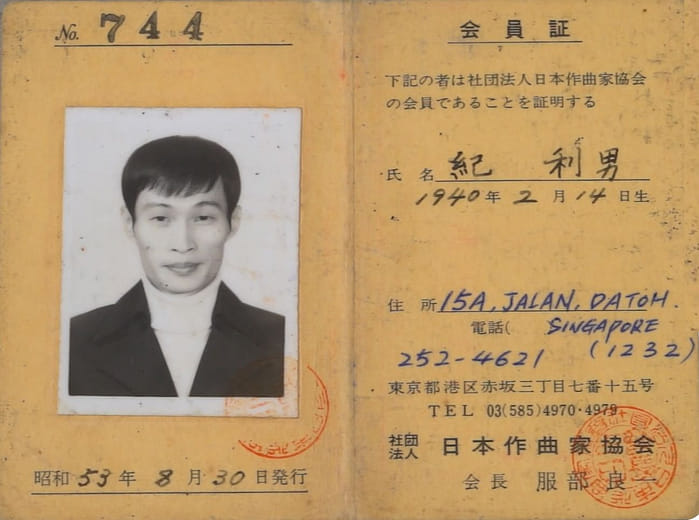 No. 744
昭和 53 年 8 月 30 日発行
会員証
下記の者は社団法人日本作曲家協会
の会員であることを証明する
氏名 紀 利男
1940 年 2 月 14 日生
住所 15A, JALAN, DATOH.
電話( SINGAPORE
252-4621 (1232)
東京都港区赤坂三丁目七番十五号
TEL 03(585)4970·4979
社団法人 日本作曲家協会
会長 服部良一